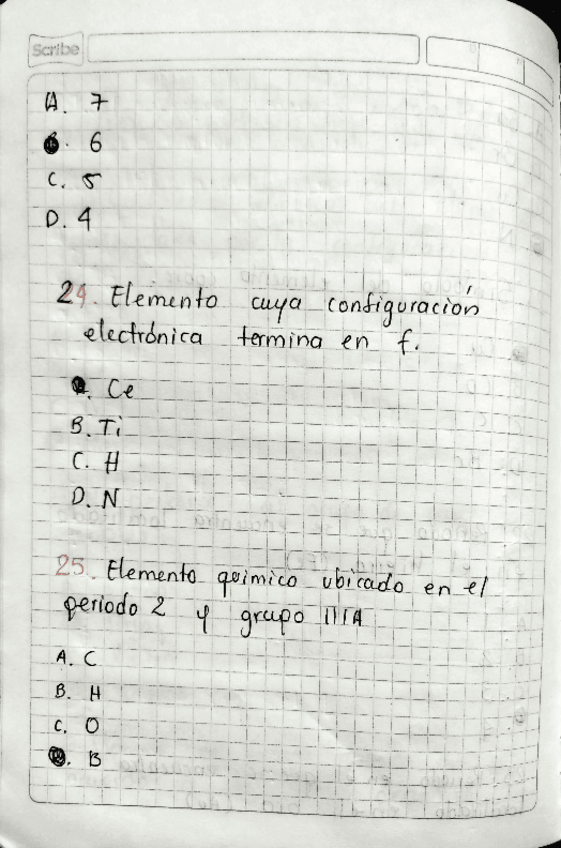 Scribe
A. 7
B. 6
C. 5
D. 4
24. Elemento cuya configuración
electrónica termina en f.
A. Ce
B. Ti
C. H
D. N
25. Elemento químico ubicado en el
periodo 2 y grupo IIIA
A. C
B. H
C. O
D. B